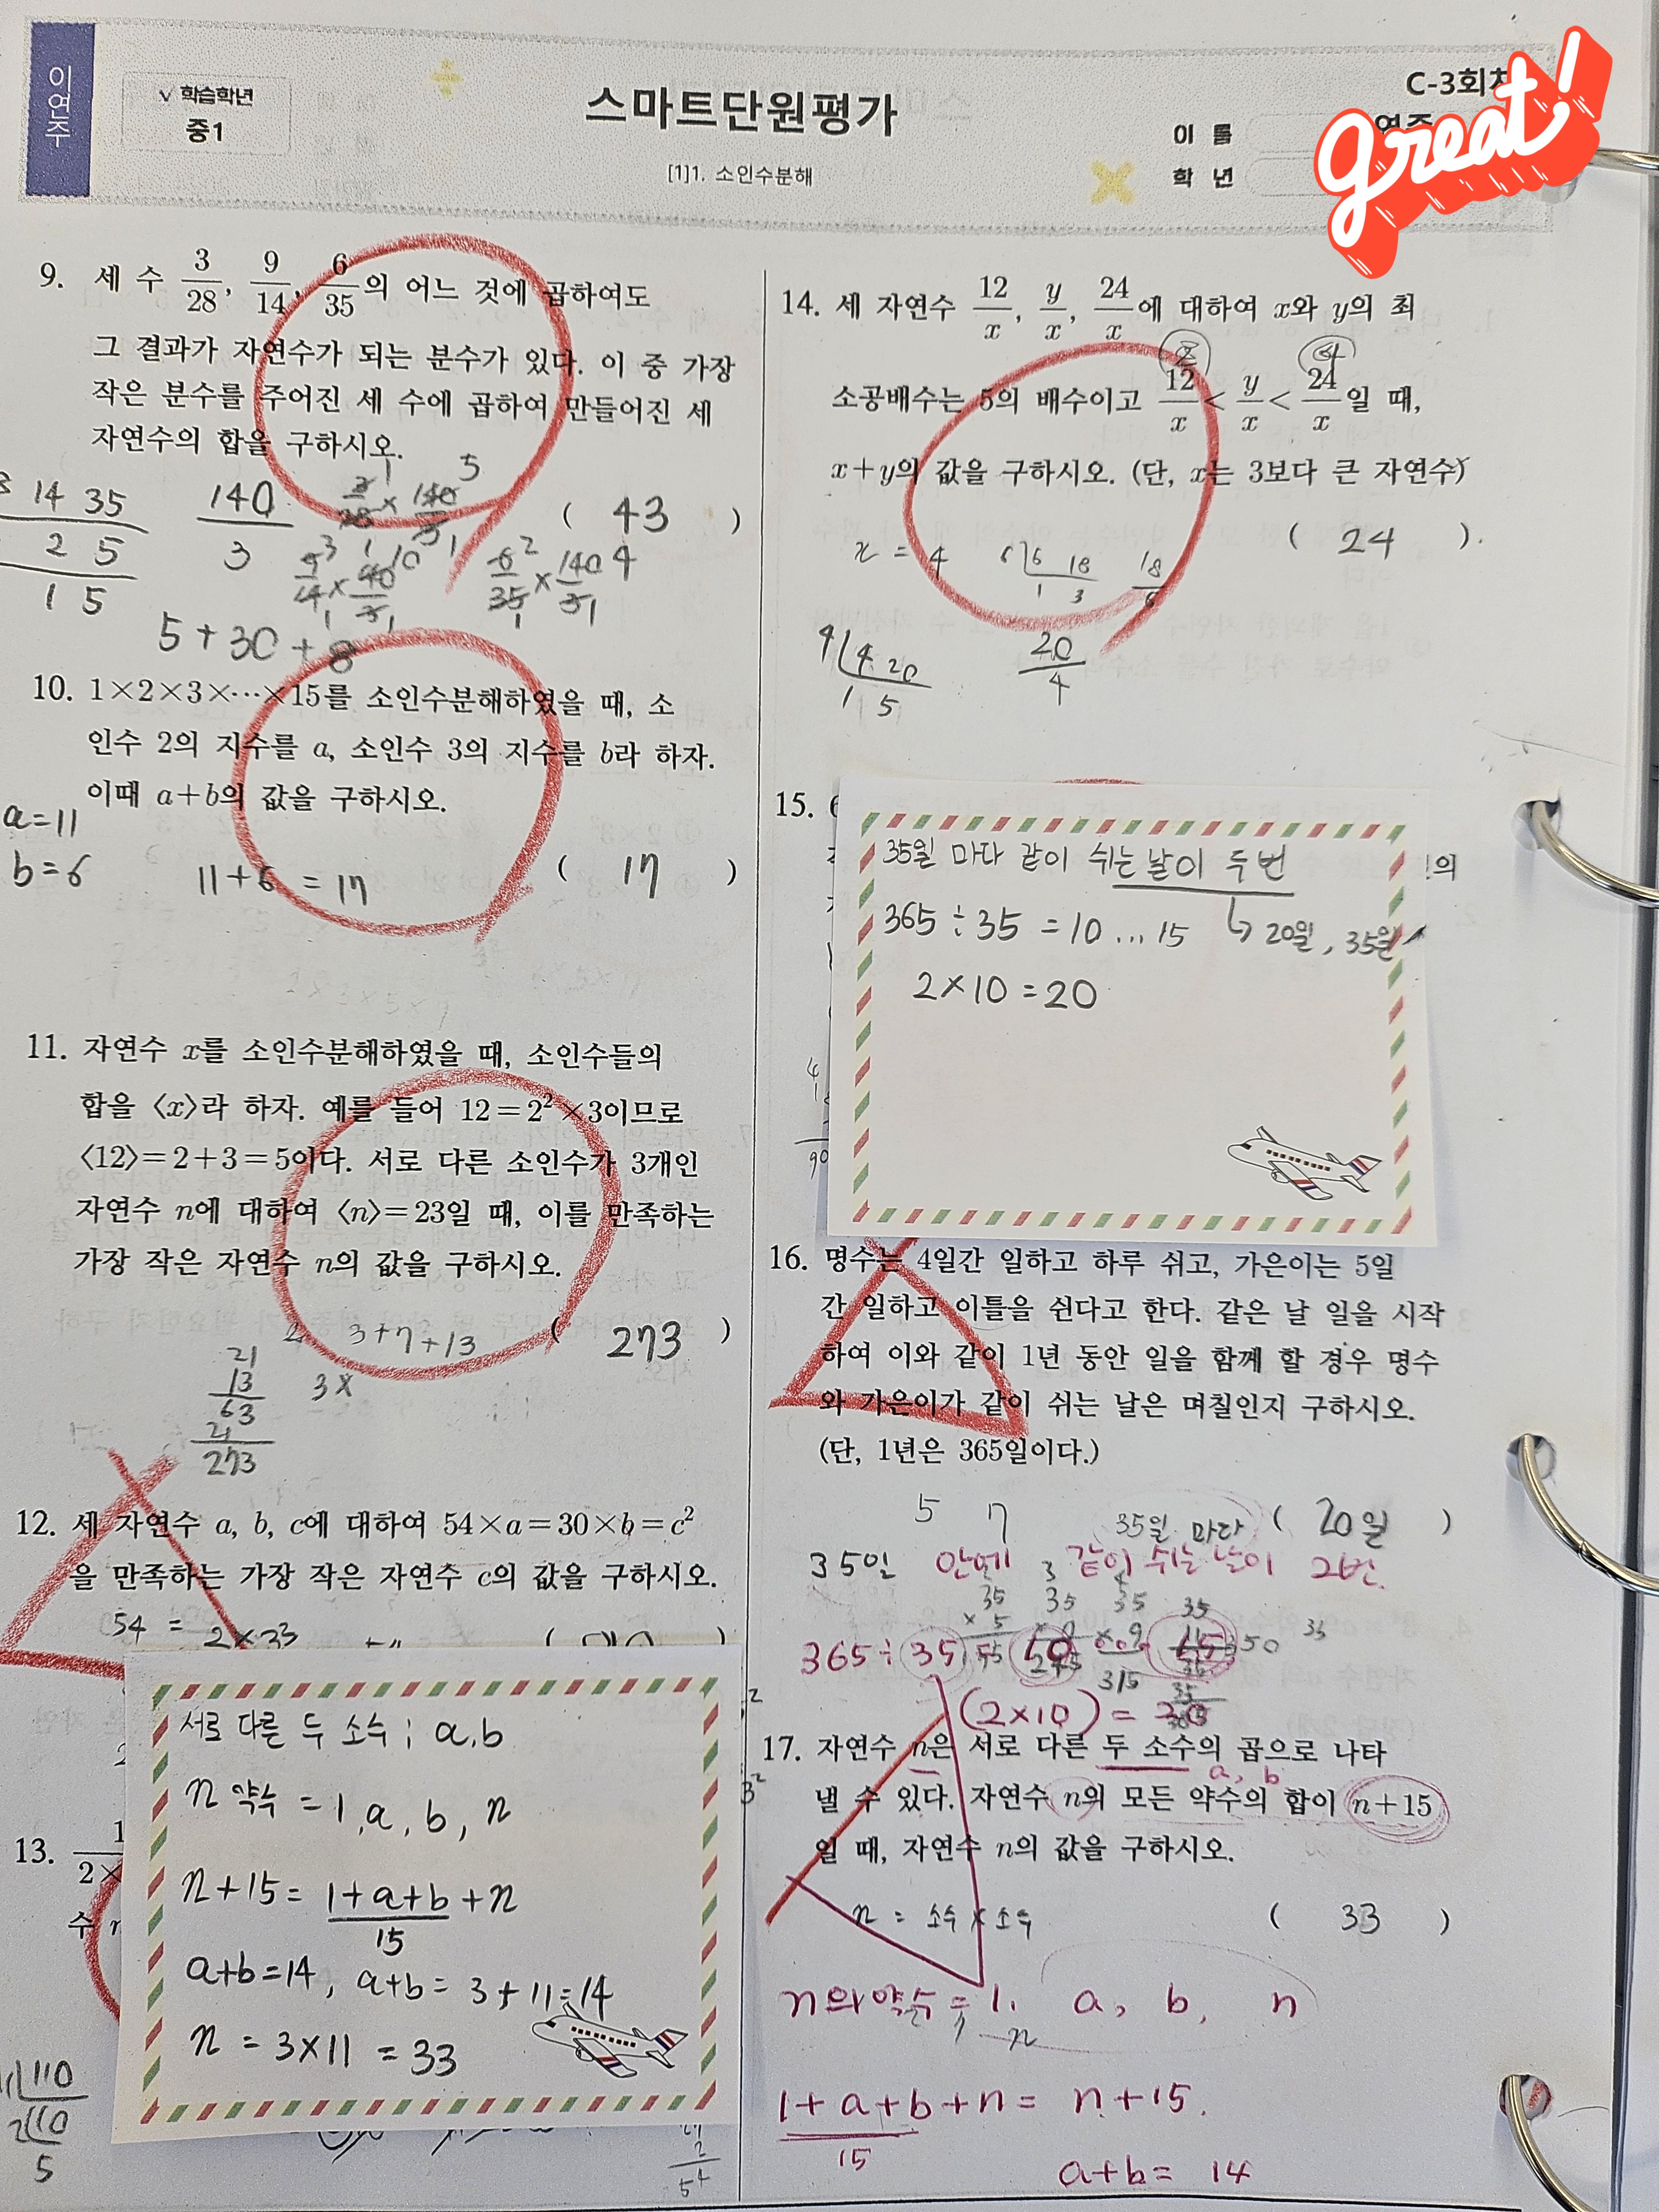 이연주
√ 학습학년
중1
스마트단원평가
[1]1. 소인수분해
C-3회차
이 름
학 년
great!
9. 세 수 3/28, 9/14, 6/35의 어느 것에 곱하여도
그 결과가 자연수가 되는 분수가 있다. 이 중 가장
작은 분수를 주어진 세 수에 곱하여 만들어진 세
자연수의 합을 구하시오.
( 43 )
14 35
2 5
1 5
140/3
3/28 × 140/3
9/14 × 140/3
6/35 × 140/3
5+30+8
10. 1×2×3×⋯×15를 소인수분해하였을 때, 소
인수 2의 지수를 a, 소인수 3의 지수를 b라 하자.
이때 a+b의 값을 구하시오.
a=11
b=6
11+6=17
( 17 )
11. 자연수 x를 소인수분해하였을 때, 소인수들의
합을 〈x〉라 하자. 예를 들어 12=2²×3이므로
〈12〉=2+3=5이다. 서로 다른 소인수가 3개인
자연수 n에 대하여 〈n〉=23일 때, 이를 만족하는
가장 작은 자연수 n의 값을 구하시오.
3+7+13
( 273 )
21
13
63
21
273
3×
12. 세 자연수 a, b, c에 대하여 54×a=30×b=c²
을 만족하는 가장 작은 자연수 c의 값을 구하시오.
54 = 2×3³
서로 다른 두 소수 ; a, b
n 약수 = 1, a, b, n
n+15 = 1+a+b+n
15
a+b=14, a+b= 3+11=14
n = 3×11 = 33
13.
110
10
5
14. 세 자연수 12/x, y/x, 24/x에 대하여 x와 y의 최
소공배수는 5의 배수이고 12/x < y/x < 24/x일 때,
x+y의 값을 구하시오. (단, x는 3보다 큰 자연수)
( 24 )
x = 4
6 18
1 3
18/6
4 4 20
1 5
20/4
15.
35일 마다 같이 쉬는 날이 두번
365÷35=10…15 ↳ 20일, 35일
2×10=20
16. 명수는 4일간 일하고 하루 쉬고, 가은이는 5일
간 일하고 이틀을 쉰다고 한다. 같은 날 일을 시작
하여 이와 같이 1년 동안 일을 함께 할 경우 명수
와 가은이가 같이 쉬는 날은 며칠인지 구하시오.
(단, 1년은 365일이다.)
5 7
35일 마다 ( 20일 )
35일 안에 같이 쉬는 날이 2번.
365÷35=10…15
(2×10)=20
17. 자연수 n은 서로 다른 두 소수의 곱으로 나타
a, b
낼 수 있다. 자연수 n의 모든 약수의 합이 n+15
일 때, 자연수 n의 값을 구하시오.
n = 소수×소수
( 33 )
n의 약수 = 1, a, b, n
1+a+b+n = n+15.
15
a+b= 14